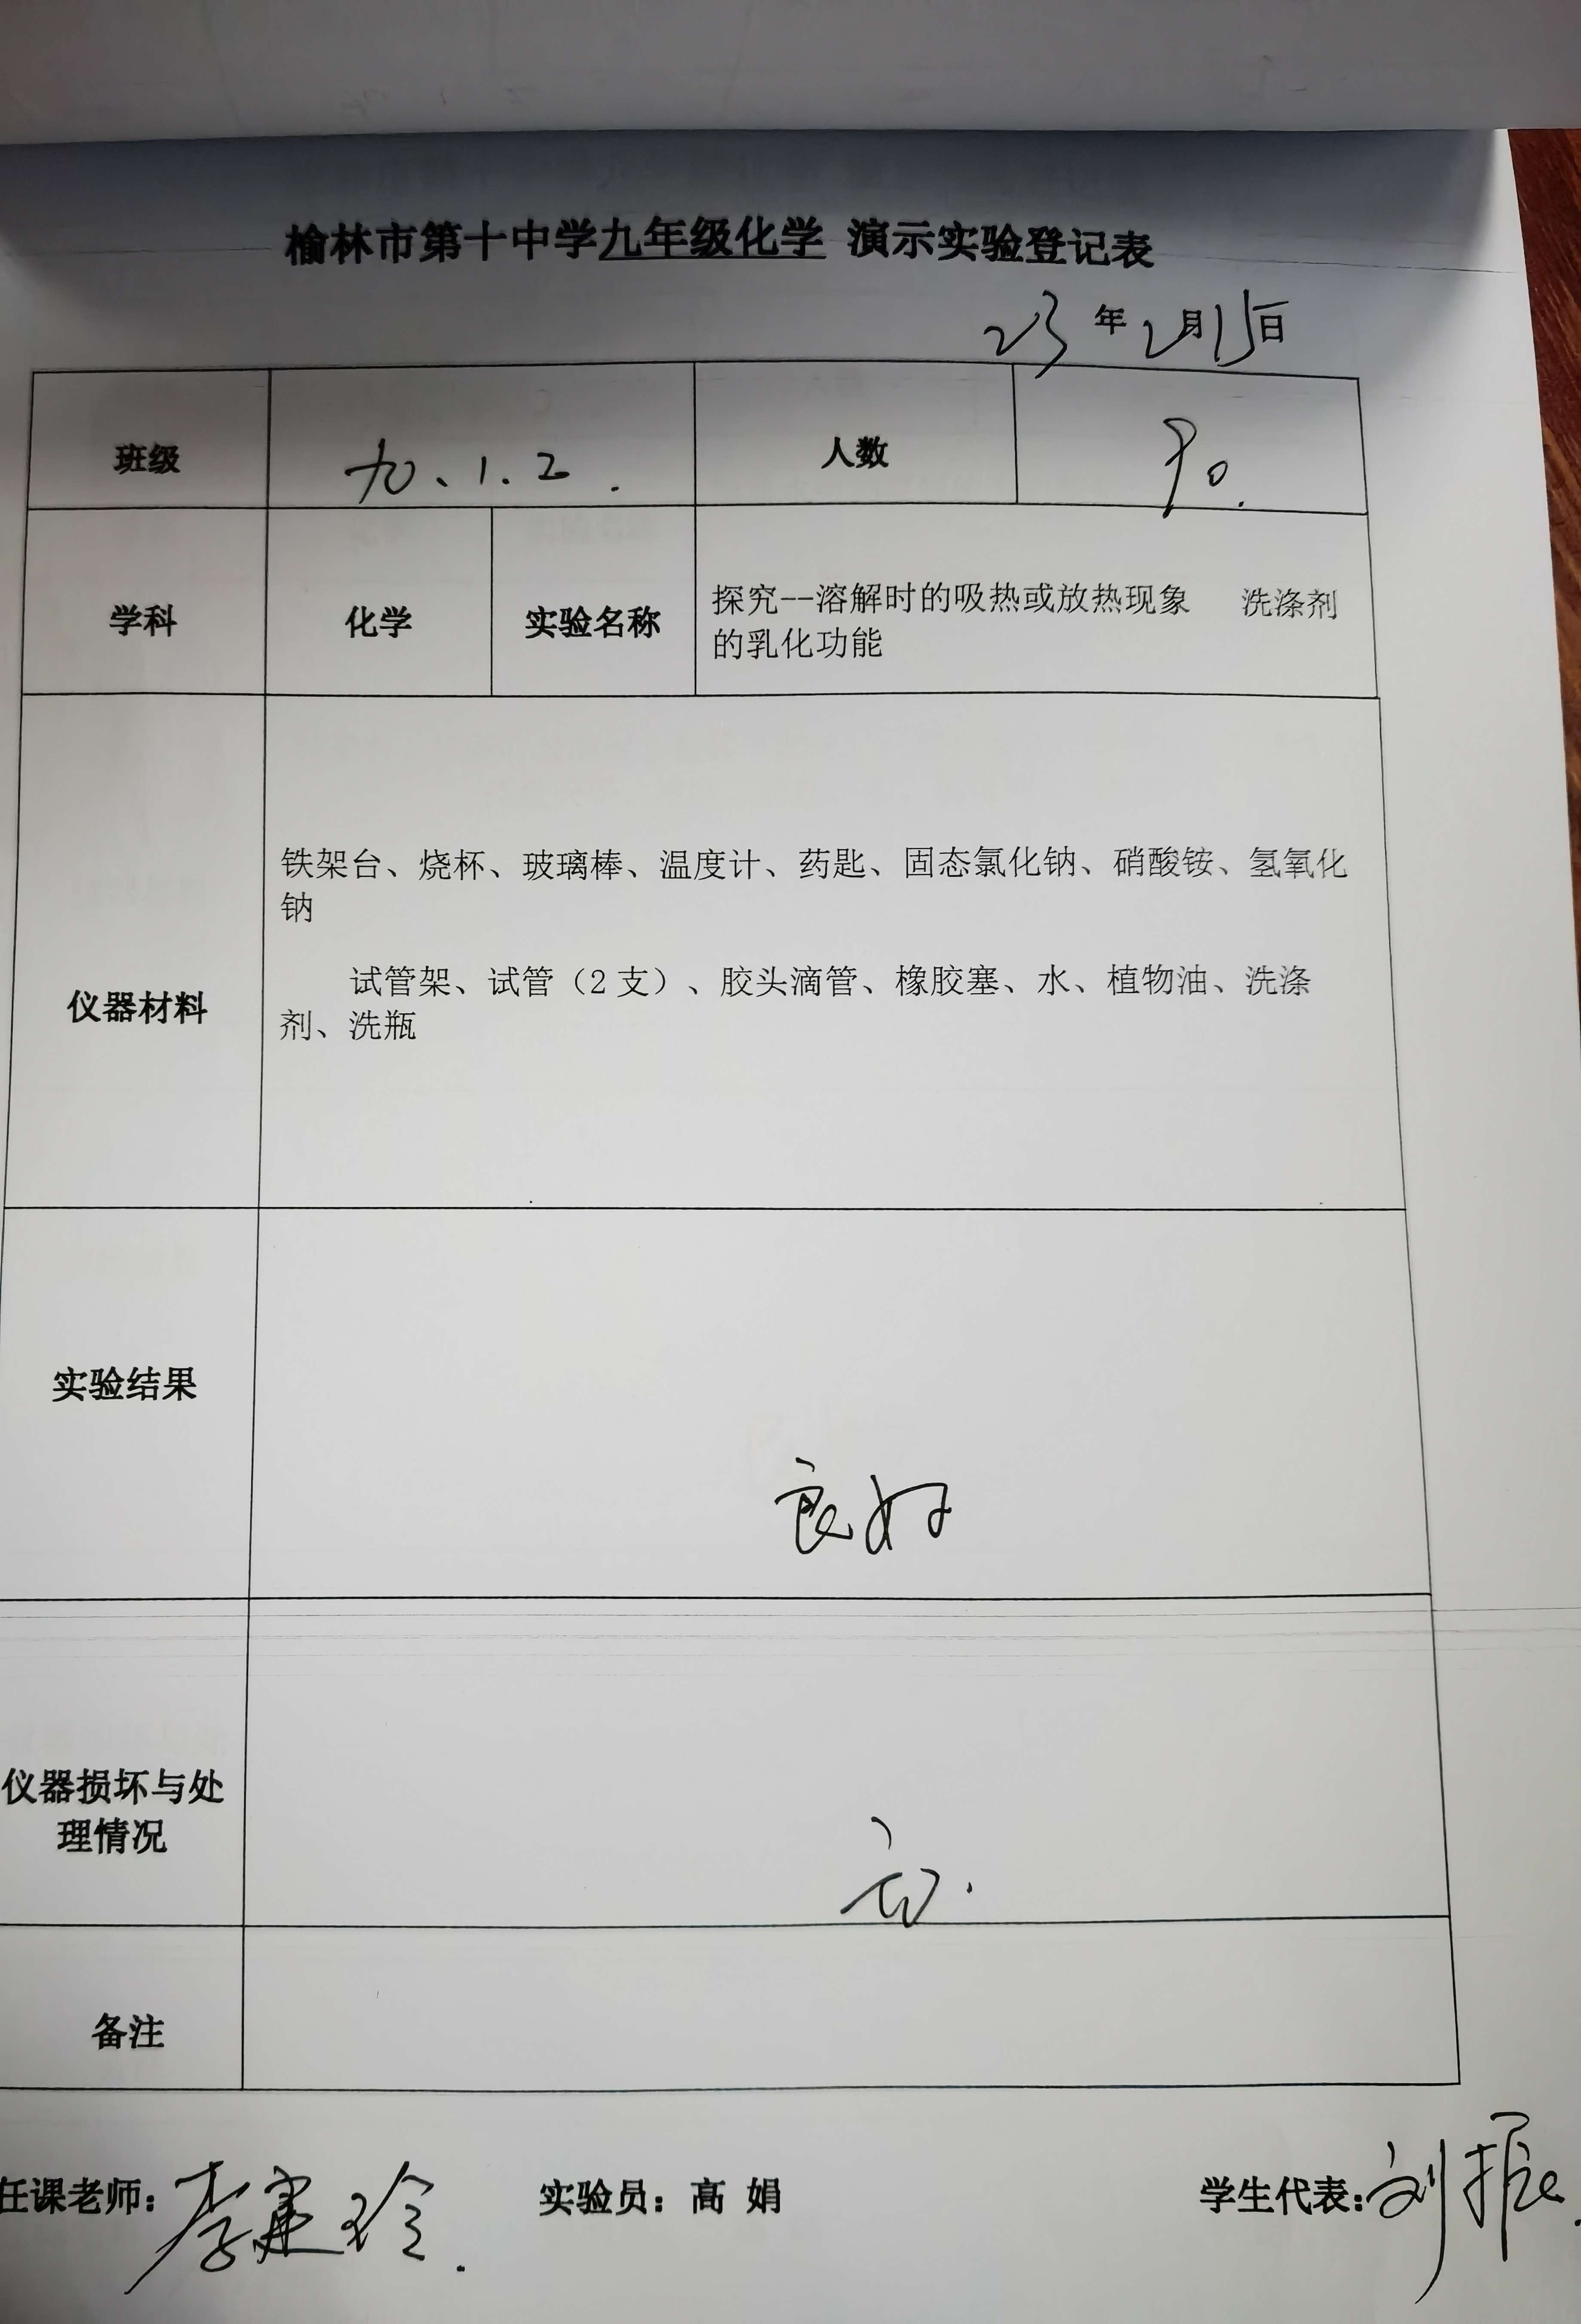 榆林市第十中学九年级化学 演示实验登记表
23年2月15日
班级 九、1.2. 人数 90.
学科 化学 实验名称 探究--溶解时的吸热或放热现象 洗涤剂
的乳化功能
仪器材料
铁架台、烧杯、玻璃棒、温度计、药匙、固态氯化钠、硝酸铵、氢氧化
钠
试管架、试管（2支）、胶头滴管、橡胶塞、水、植物油、洗涤
剂、洗瓶
实验结果
良好
仪器损坏与处
理情况
备注
任课老师：李 玲. 实验员：高 娟 学生代表：刘振